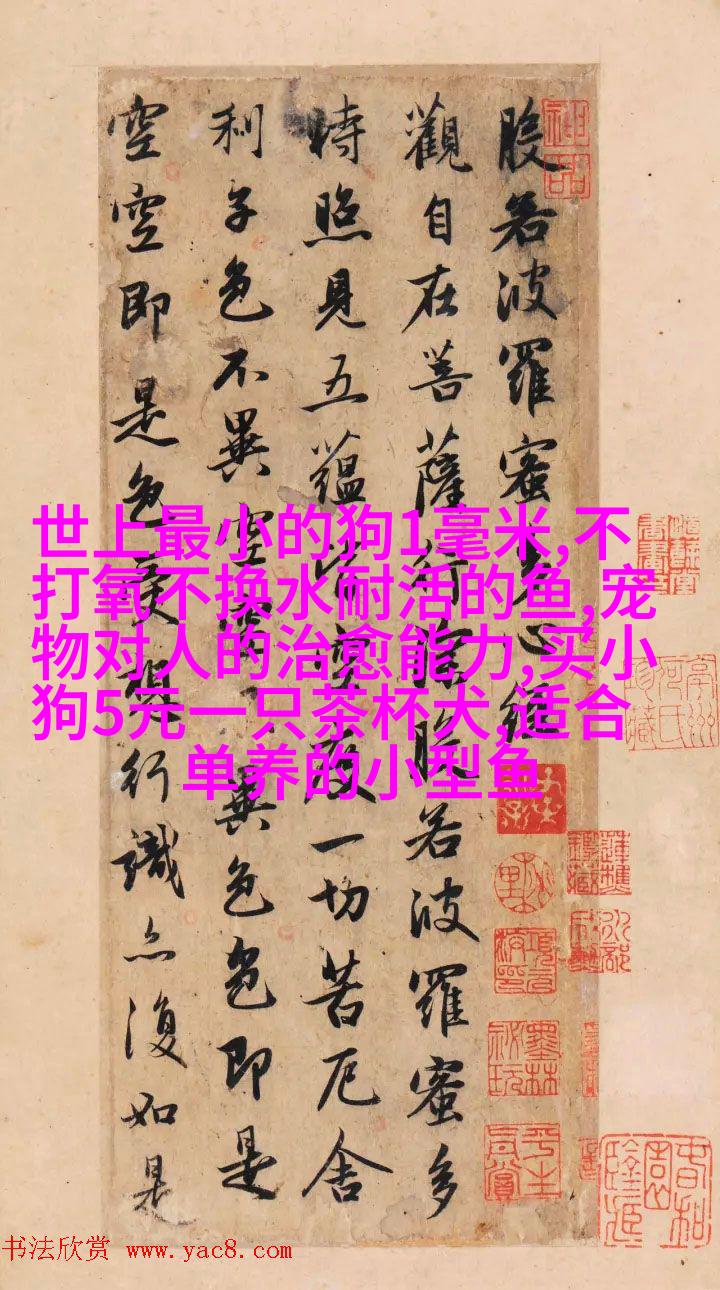 般若波羅蜜多心經
觀自在菩薩行深般若波羅蜜多
時照見五蘊皆空度一切苦厄舍
利子色不異空空不異色色即是
空空即是色受想行識亦復如是
神品
世上最小的狗1毫米,不
打氧不换水耐活的鱼,宠
物对人的治愈能力,买小
狗5元一只茶杯犬,适合
单养的小型鱼
书法欣赏 www.yac8.com